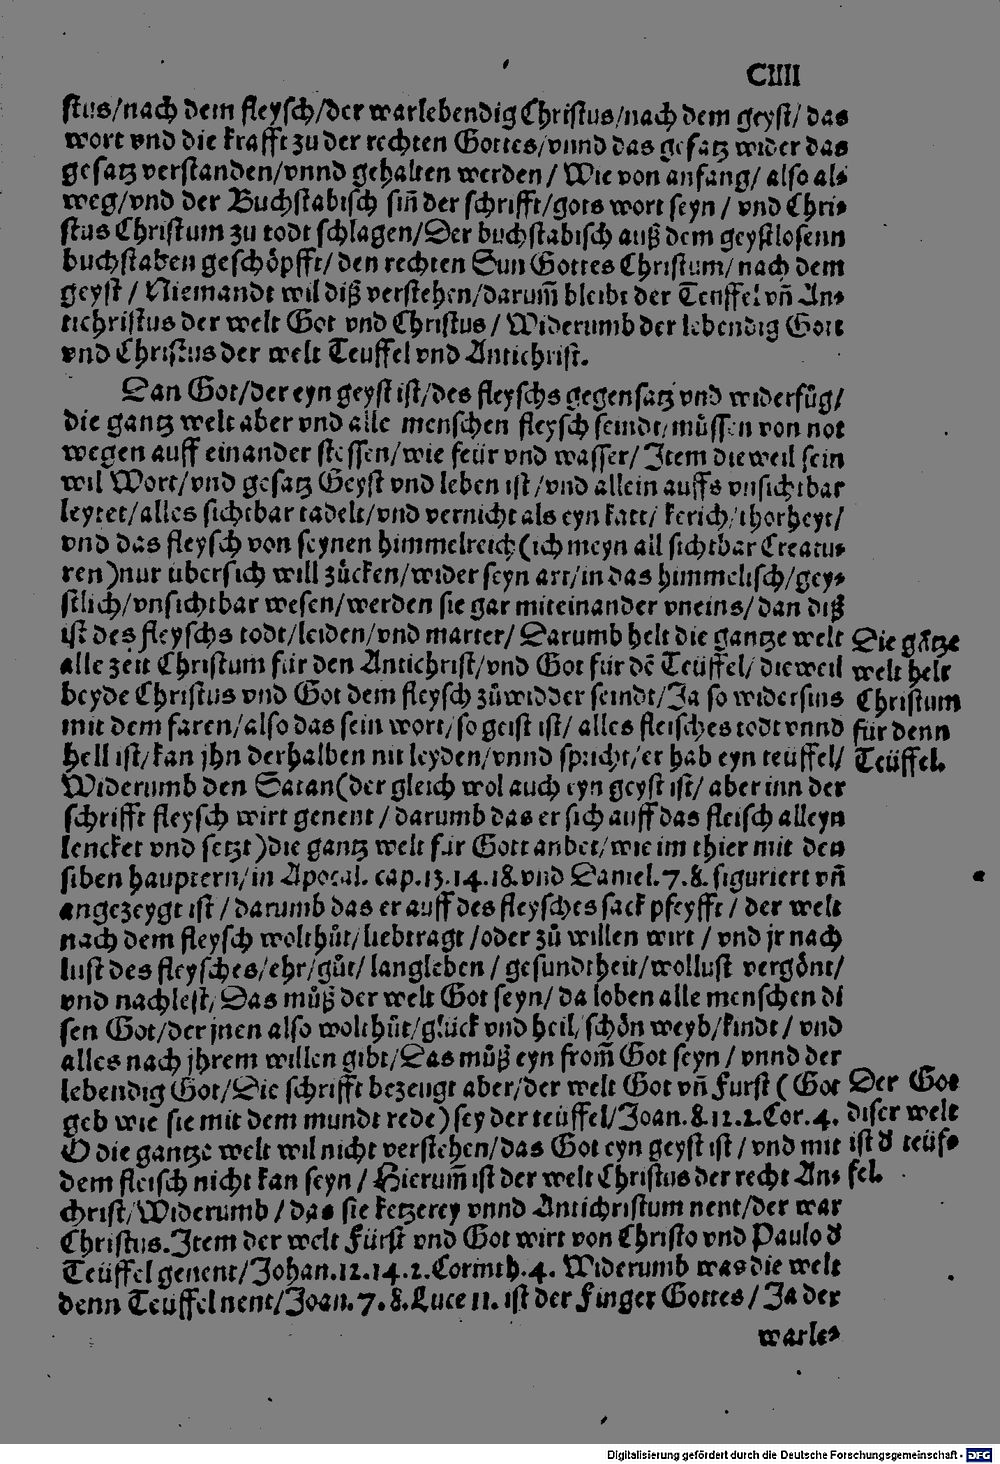 CIIII
stus/nach dem fleysch/der warlebendig Christus/nach dem geyst/ das
wort vnd die krafft zu der rechten Gottes/vnnd das gesatz wider das
gesatz verstanden/vnnd gehalten werden / Wie von anfang/ also als
weg/vnd der Buchstabisch sin̄ der schrifft/gots wort seyn / vnd Chri⸗
stus Christum zu todt schlagen/Der buchstabisch auß dem geystlosenn
buchstaben geschöpfft/ den rechten Sun Gottes Christum/ nach dem
geyst / Niemandt wil diß verstehen/darum̄ bleibt der Teuffel vn̄ An⸗
tichristus der welt Got vnd Christus / Widerumb der lebendig Gott
vnd Christus der welt Teuffel vnd Antichrist.
Dan Got/der eyn geyst ist/des fleyschs gegensatz vnd widerfüg/
die gantz welt aber vnd alle menschen fleysch seindt/müssen von not
wegen auff einander stossen/wie feür vnd wasser/ Item die weil sein
wil Wort/vnd gesatz Geyst vnd leben ist /vnd allein auffs vnsichtbar
leytet/alles sichtbar tadelt/vnd vernicht als eyn katt/ kerich/thorheyt/
vnd das fleysch von seynen himmelreich(ich meyn all sichtbar Creatu⸗
ren)nur übersich will zücken/wider seyn art/in das himmelisch/gey⸗
stlich/vnsichtbar wesen/werden sie gar miteinander vneins/ dan diß
ist des fleyschs todt/leiden/vnd marter/ Darumb helt die gantze welt
alle zeit Christum für den Antichrist/vnd Got für dē Teüffel/ die weil
beyde Christus vnd Got dem fleysch zůwidder seindt/Ja so widersins
mit dem faren/also das sein wort/so geist ist/ alles fleisches todt vnnd
hell ist/kan jhn derhalben nit leyden/vnnd spricht/er hab eyn teüffel/
Die gātze
welt helt
Christum
für denn
Teüffel.
Widerumb den Satan(der gleich wol auch eyn geyst ist/ aber inn der
schrifft fleysch wirt genent / darumb das er sich auff das fleisch alleyn
lencket vnd setzt)die gantz welt für Gott anbet/wie im thier mit den
siben hauptern/in Apocal. cap.13.14.18.vnd Daniel.7.8. figuriert vn̄
angezeygt ist / darumb das er auff des fleysches sack pfeyfft / der welt
nach dem fleysch wolthůt/liebtragt /oder zů willen wirt / vnd jr nach
lust des fleysches/ehr/gůt/ langleben / gesundtheit/wollust vergönt/
vnd nachlest/ Das můß der welt Got seyn/ da loben alle menschen di
sen Got/der jnen also wolthůt/glück vnd heil/schön weyb/kindt / vnd
alles nach jhrem willen gibt/Das můß eyn from̄ Got seyn / vnnd der
lebendig Got/Die schrifft bezeugt aber/der welt Got vn̄ Furst ( Got
geb wie sie mit dem mundt rede)sey der teüffel/Joan.8.12.2.Cor.4.
O die gantze welt wil nicht verstehen/das Got eyn geyst ist / vnd mit
dem fleisch nicht kan seyn / Hierum̄ ist der welt Christus der recht An⸗
Der Got
diser welt
ist d teüf⸗
fel.
christ/Widerumb / das sie ketzerey vnnd Antichristum nent/der war
Christus.Item der welt Fürst vnd Got wirt von Christo vnd Paulo d
Teüffel genent/Johan.12.14.2.Corinth.4. Widerumb was die welt
denn Teuffel nent/Joan.7.8.Luce 11. ist der Finger Gottes / Ja der
warle⸗
Digitalisierung gefördert durch die Deutsche Forschungsgemeinschaft - DFG